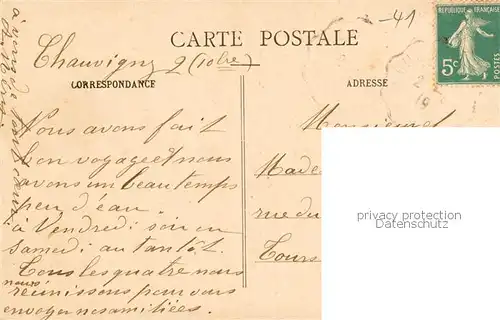 -41
CARTE POSTALE
RÉPUBLIQUE FRANÇAISE
5c
POSTES
Chauvigny 2 (10bre)
CORRESPONDANCE
ADRESSE
Nous avons fait
bon voyage et nous
avons un beau temps
peu d'eau.
à Vendredi soir ou
samedi au tantôt.
Tous les quatre nous
nous
réunissons pour vous
envoyer nos amitiées.
à vous de tout cœur
Monsieur et
Made
rue du
Tours
privacy protection
Datenschutz